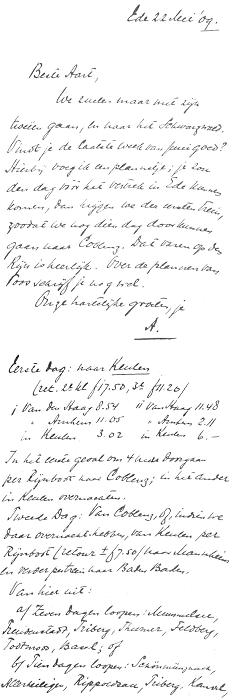 Ede 22 Mei '09.
Beste Aart,
We zullen maar met zijn
tweeën gaan, en naar het Schwarzwald.
Vindt je de laatste week van juni goed?
Hierbij voeg ik een plannetje; je zou
den dag vóór het vertrek in Ede kunnen
komen, dan krijgen we den eersten trein,
zoodat we nog dien dag door kunnen
gaan naar Coblenz. Dat varen op den
Rijn is heerlijk. Over de plannen van
schrijf je nog wel.
Onze hartelijke groeten, je
A.
Eerste dag: naar Keulen
(ret. 2e kl f 17.50, 3e f 11.20)
i Van den Haag 8.54 ii Van Haag 11.48
" Arnhem 11.05 " Arnhem 2.11
in Keulen 3.02 in Keulen 6.—
In het eerste geval om 4 uur doorgaan
per Rijnboot naar Coblenz; in het ander
in Keulen overnachten.
Tweede Dag: Van Coblenz, of, indien we
daar overnacht hebben, van Keulen per
Rijnboot (retour ± f 7.50) naar Mannheim
en verder per trein naar Baden Baden.
Van hier uit:
a/ Zeven dagen loopen:
Freudenstadt, Triberg, Feldberg,
Todtmoos, Basel; of
b/ Tien dagen loopen: Schönmünzach,
Allerheiligen, Rippoldsau, Triberg,